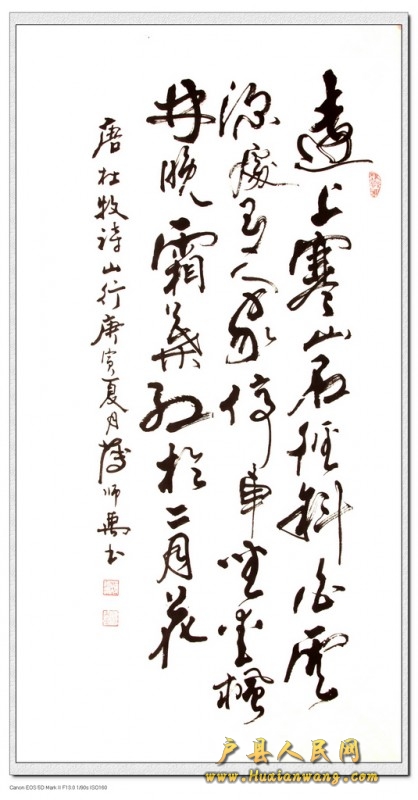 遠上寒山石徑斜白雲
深處有人家停車坐愛楓
林晚霜葉紅於二月花
唐杜牧詩山行庚寅夏月師书
户县人民网
www.Huxianwang.com
Canon EOS 5D Mark II F13.0 1/60s ISO160